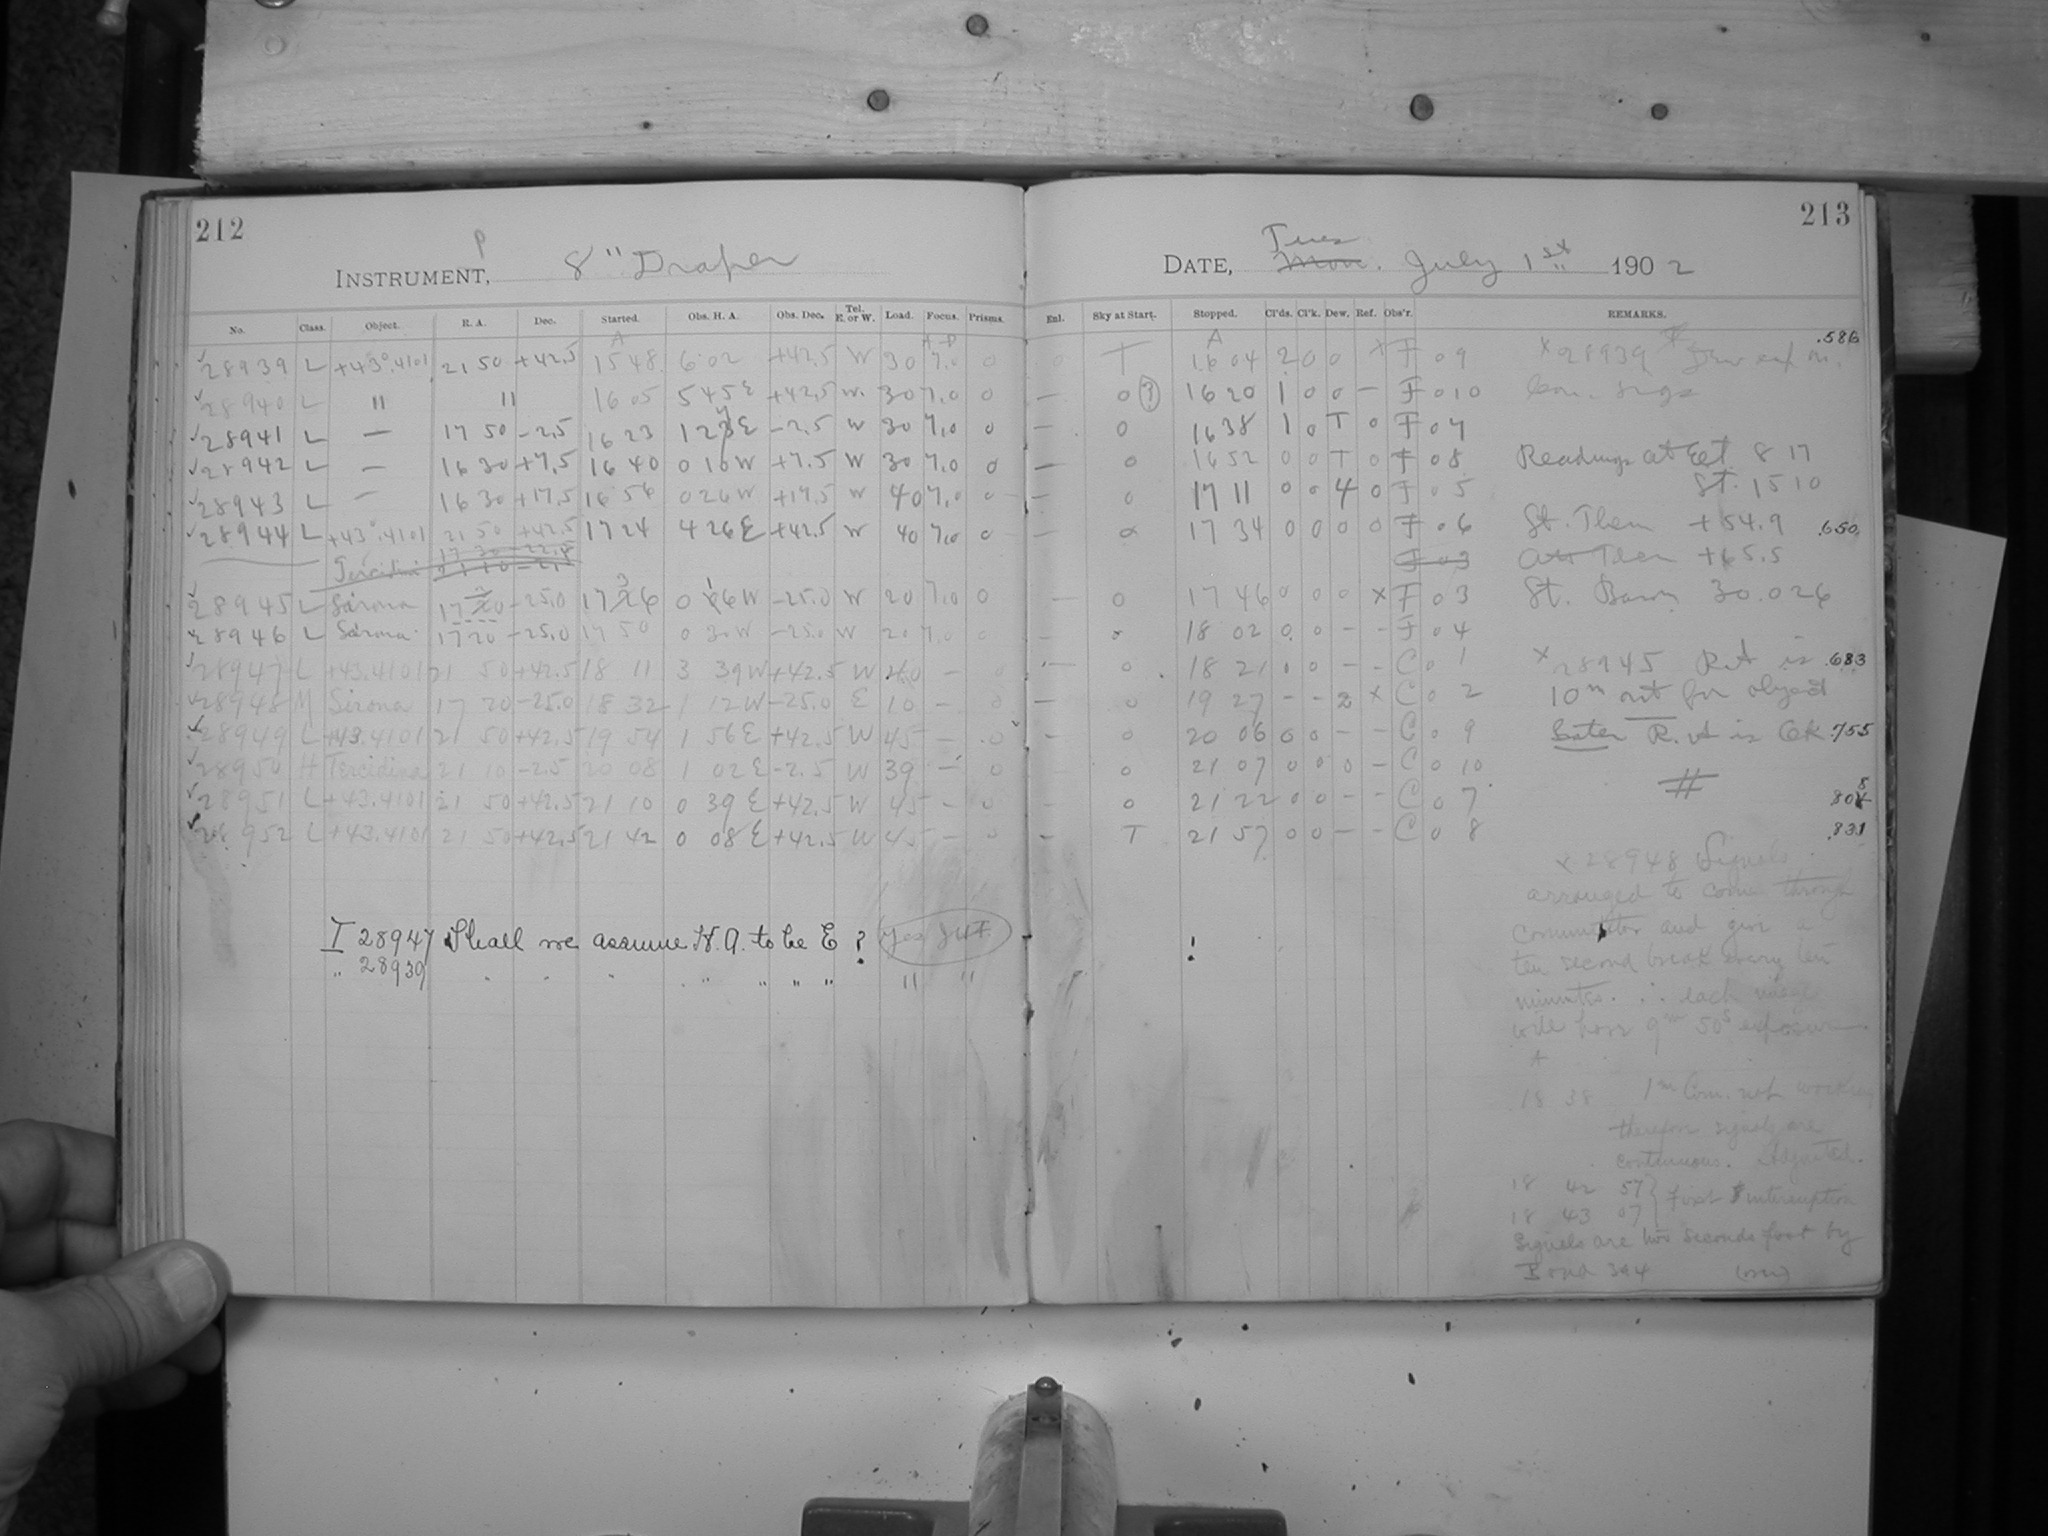 212
P
INSTRUMENT, 8" Draper
No. Class. Object. R. A. Dec. Started. Obs. H. A. Obs. Dec. Tel. E. or W. Load. Focus. Prisms.
28939 L +43°.4101 21 50 +42.5 15 48 6 02 +42.5 W 30 7.0 0
28940 L " " 16 05 5 45 E +42.5 W. 30 7.0 0
28941 L — 17 50 -2.5 16 23 1 23 E -2.5 W 30 7.0 0
28942 L — 16 30 +7.5 16 40 0 10 W +7.5 W 30 7.0 0
28943 L — 16 30 +17.5 16 56 0 26 W +17.5 W 40 7.0 0
28944 L +43°.4101 21 50 +42.5 17 24 4 26 E +42.5 W 40 7.0 0
Tercidina
28945 L Sirona 17 -25.0 17 0 W -25.0 W 20 7.0 0
28946 L Sirona 17 20 -25.0 17 50 0 30 W -25.0 W 20 7.0 0
28947 L +43.4101 21 50 +42.5 18 11 3 39 W +42.5 W 40 — 0
28948 M Sirona 17 20 -25.0 18 32 1 12 W -25.0 E 10 — 0
28949 L +43.4101 21 50 +42.5 19 54 1 56 E +42.5 W 45 — 0
28950 H Tercidina 21 10 -2.5 20 08 1 02 E -2.5 W 39 — 0
28951 L +43.4101 21 50 +42.5 21 10 0 39 E +42.5 W 45 — 0
28952 L +43.4101 21 50 +42.5 21 42 0 08 E +42.5 W 45 — 0
I 28947 Shall we assume H.A. to be E ? Yes
" 28939 " " " " " " " " "
213
Tues
DATE, Mon. July 1st 1902
Enl. Sky at Start. Stopped. Cl'ds. Cl'k. Dew. Ref. Obs'r. REMARKS.
.586
0 T 16 04 2 0 0 x F 09 x 28939
— 0 (?) 16 20 1 0 0 — F 010
— 0 16 38 1 0 T 0 F 07
— 0 16 52 0 0 T 0 F 08 Readings at Est 8 17
— 0 17 11 0 0 4 0 F 05 St. 15 10
— 0 17 34 0 0 0 0 F 06 St. Them +54.9 .650
F 03 Att Them +65.5
— 0 17 46 0 0 0 x F 03 St. Barom 30.026
— x 18 02 0 0 — — F 04
— 0 18 21 0 0 — — C 0 1 x 28945 R.A is .683
— 0 19 27 — — 2 x C 0 2 10m out for object
— 0 20 06 0 0 — — C 0 9 Later R.A is Ok .755
— 0 21 07 0 0 0 — C 0 10
— 0 21 22 0 0 — — C 0 7 80
— T 21 57 0 0 — — C 0 8 .831
x 28948 Signals
arranged to come through
commutator and give a
ten second break every ten
minutes. ∴ each image
will have 9m 50s exposure.
18 38 1m Com. not working
therefore signals are
continuous. Adjusted.
18 42 57 } first interruption
18 43 07
Signals are two seconds fast by
Bond 394 (over)